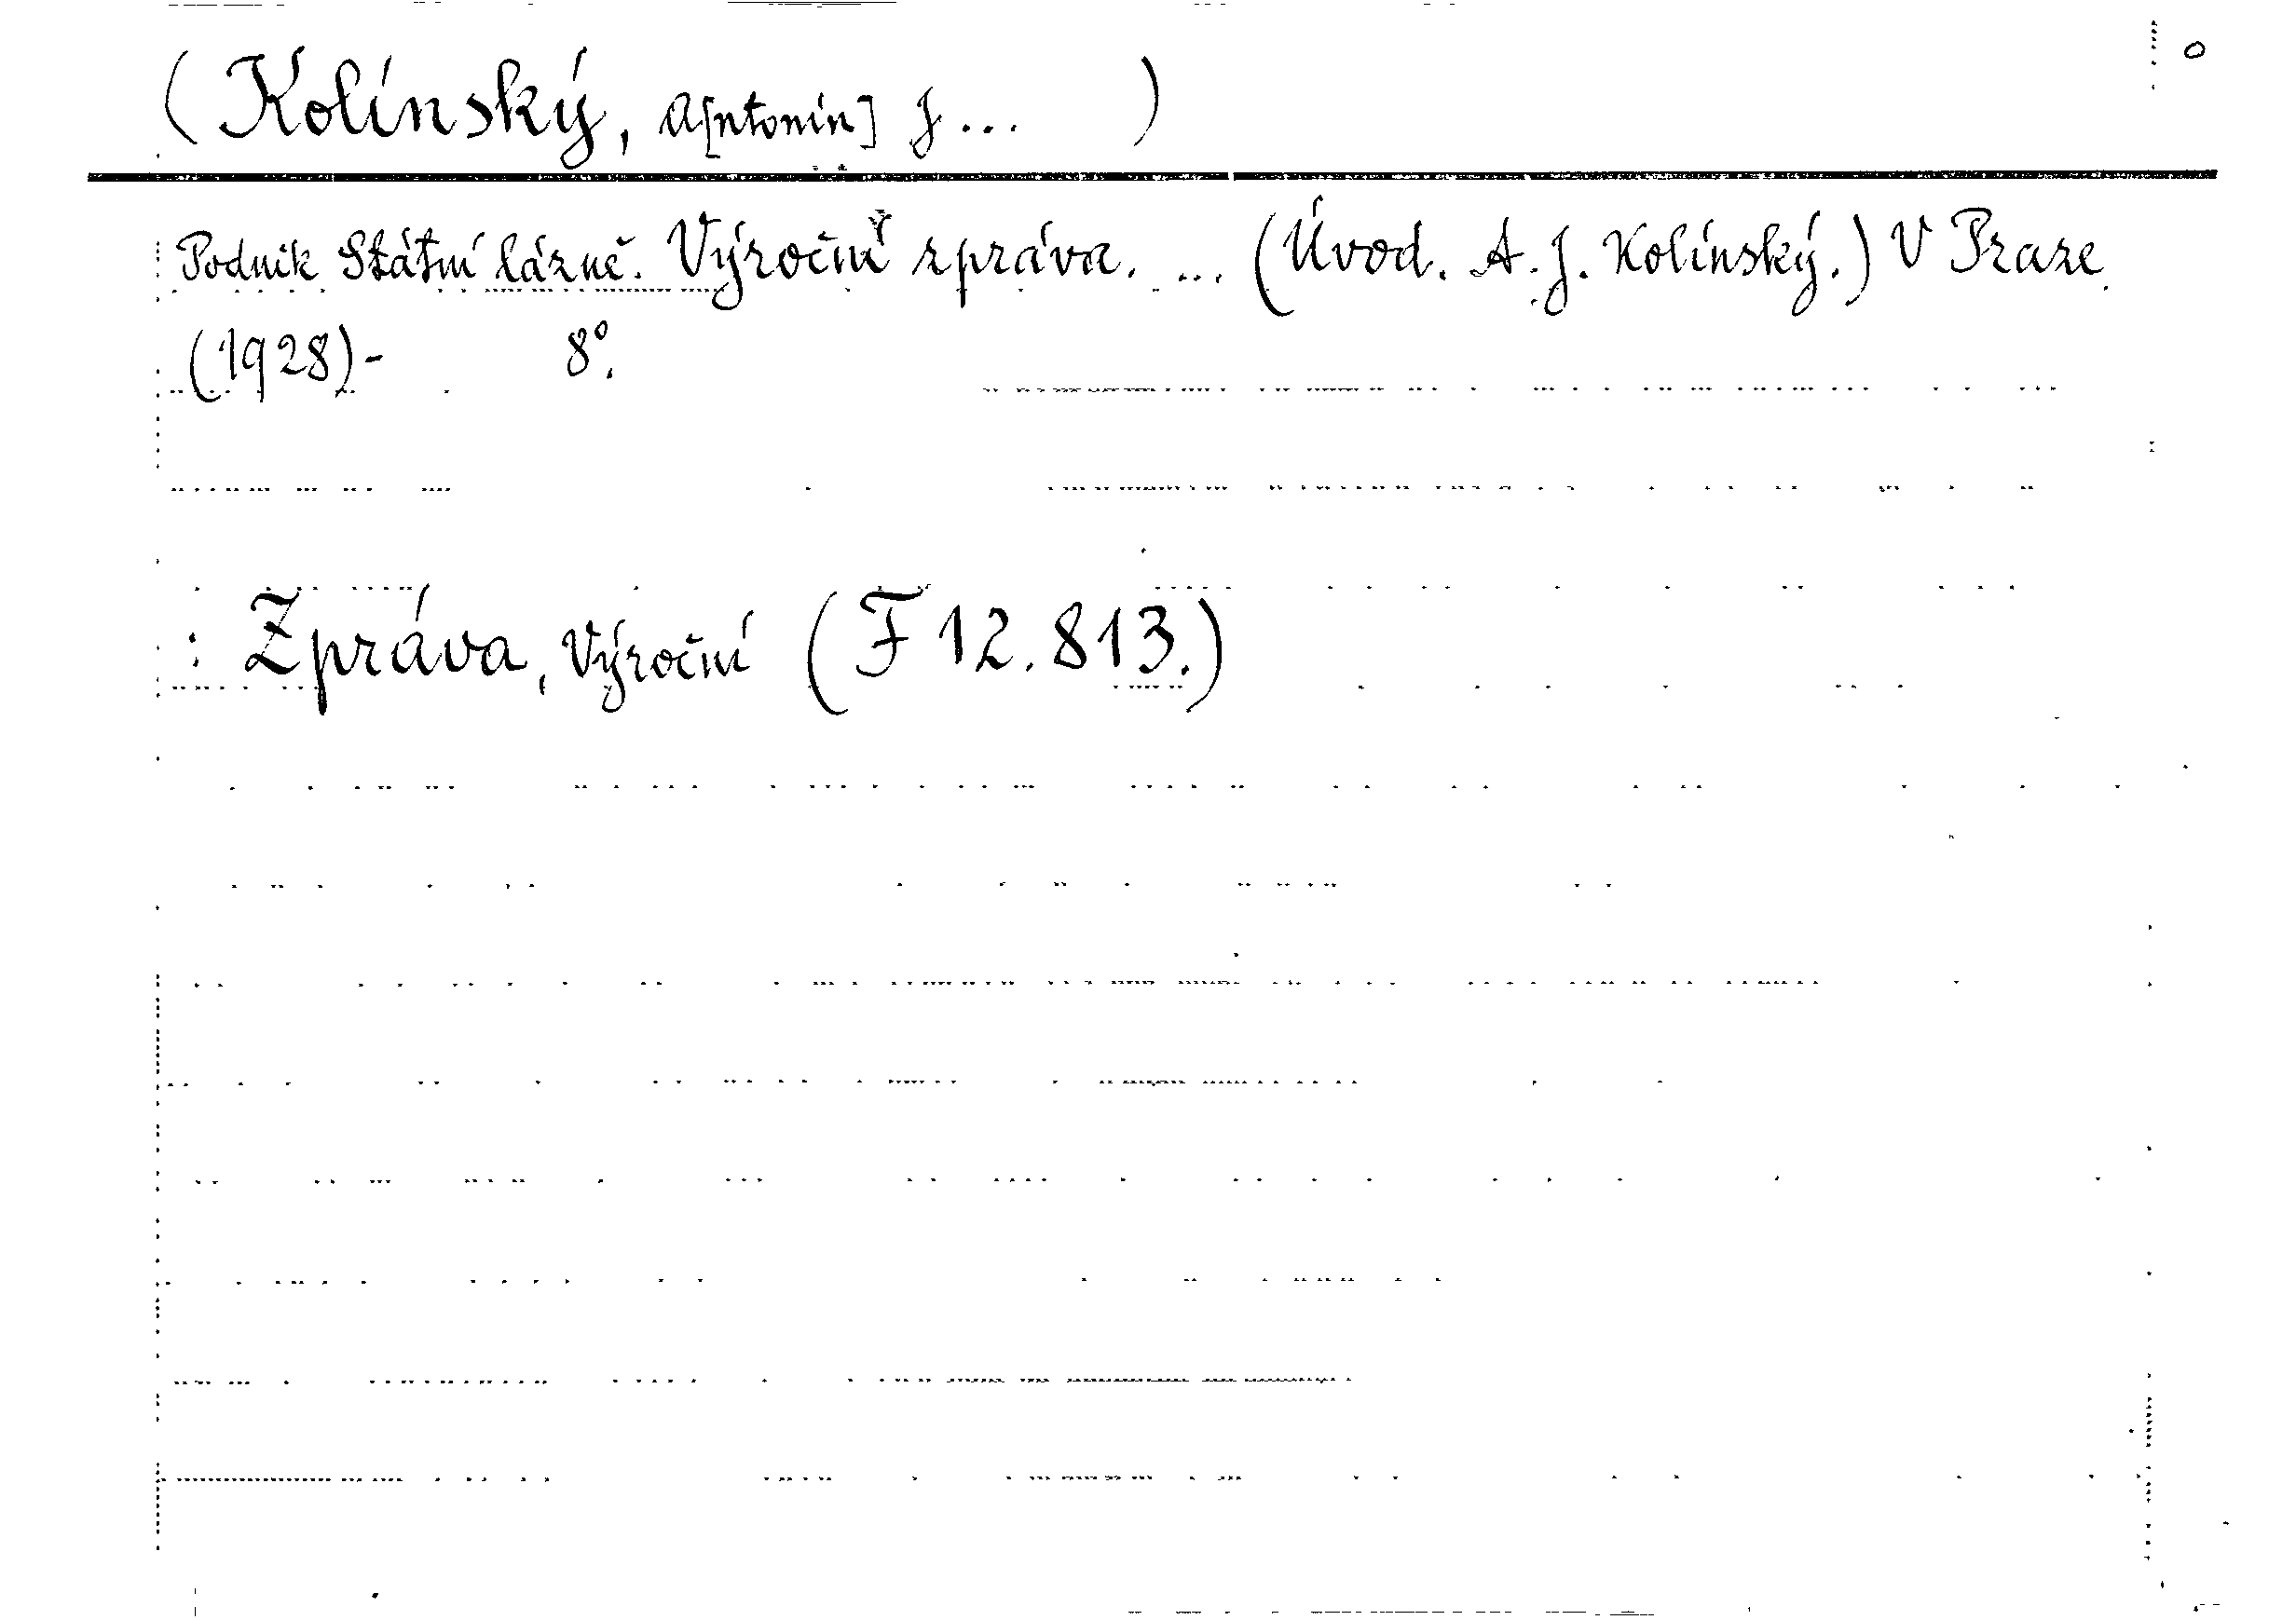 (Kolínský, A[ntonín] J... )
Podnik Státní lázně. Výroční zpráva. ... (Úvod. A. J. Kolínský.) V Praze
(1928)- 8°.
: Zpráva, Výroční (F 12.813.)